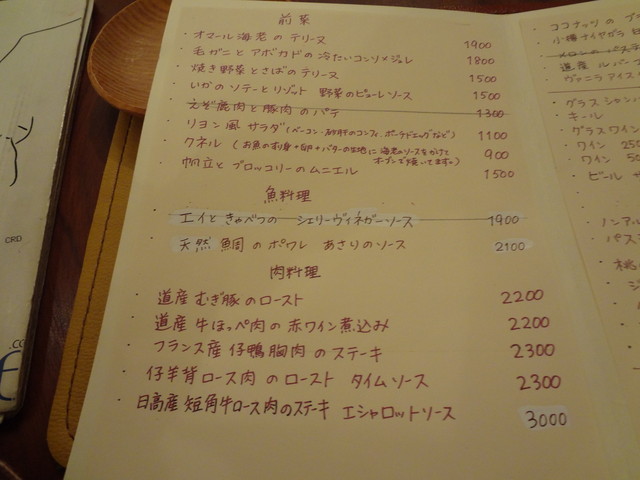 前菜
・オマール海老のテリーヌ 1900
・毛ガニとアボカドの冷たいコンソメジュレ 1800
・焼き野菜とさばのテリーヌ 1500
・いかのソテーとリゾット 野菜のピューレソース 1500
・えぞ鹿肉と豚肉のパテ 1300
・リヨン風サラダ(ベーコン・砂肝のコンフィ、ポーチドエッグなど) 1100
・クネル (お魚のすり身+卵+バターの生地に 海老のソースをかけて 900
オーブンで焼いてます。)
・帆立とブロッコリーのムニエル 1500
魚料理
・エイときゃべつの シェリーヴィネガーソース 1900
・天然 鯛のポワレ あさりのソース 2100
肉料理
・道産むぎ豚のロースト 2200
・道産牛ほっぺ肉の赤ワイン煮込み 2200
・フランス産仔鴨胸肉のステーキ 2300
・仔羊背ロース肉のロースト タイムソース 2300
・日高産短角牛ロース肉のステーキ エシャロットソース 3000
・ココナッツの
・小樽ナイヤガラ
・メロンのパステ
・道産 ルバー
・ヴァニラアイス
・グラスシャン
・キール
・グラスワイン
・ワイン 250
・ワイン 50
・ビール
・ノンアル
・パス
・桃
・ジ
CRD
.co